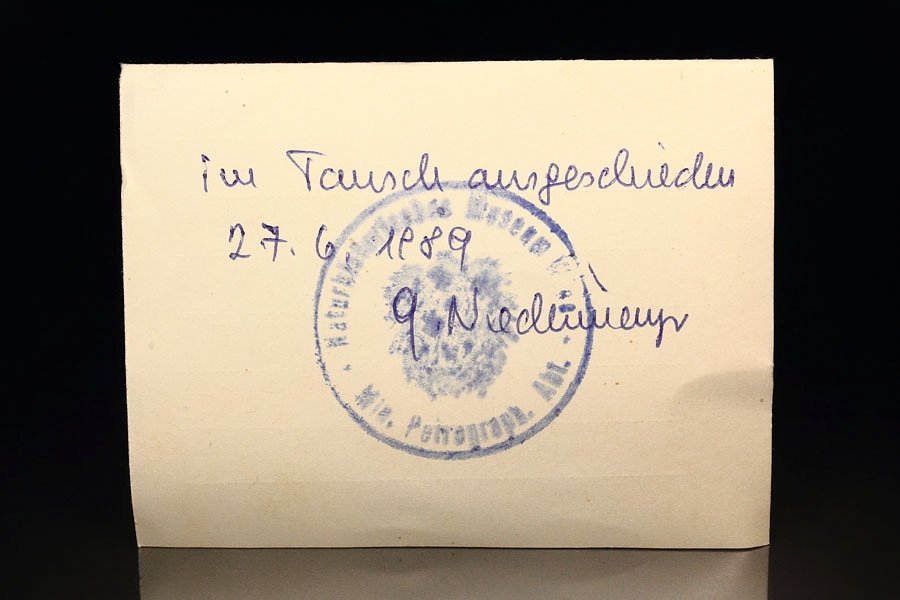 im Tausch ausgeschieden
27. 6. 1989
G. Niedermayr
Naturhistorisches Museum Wien
· Min. Petrograph. Abt. ·